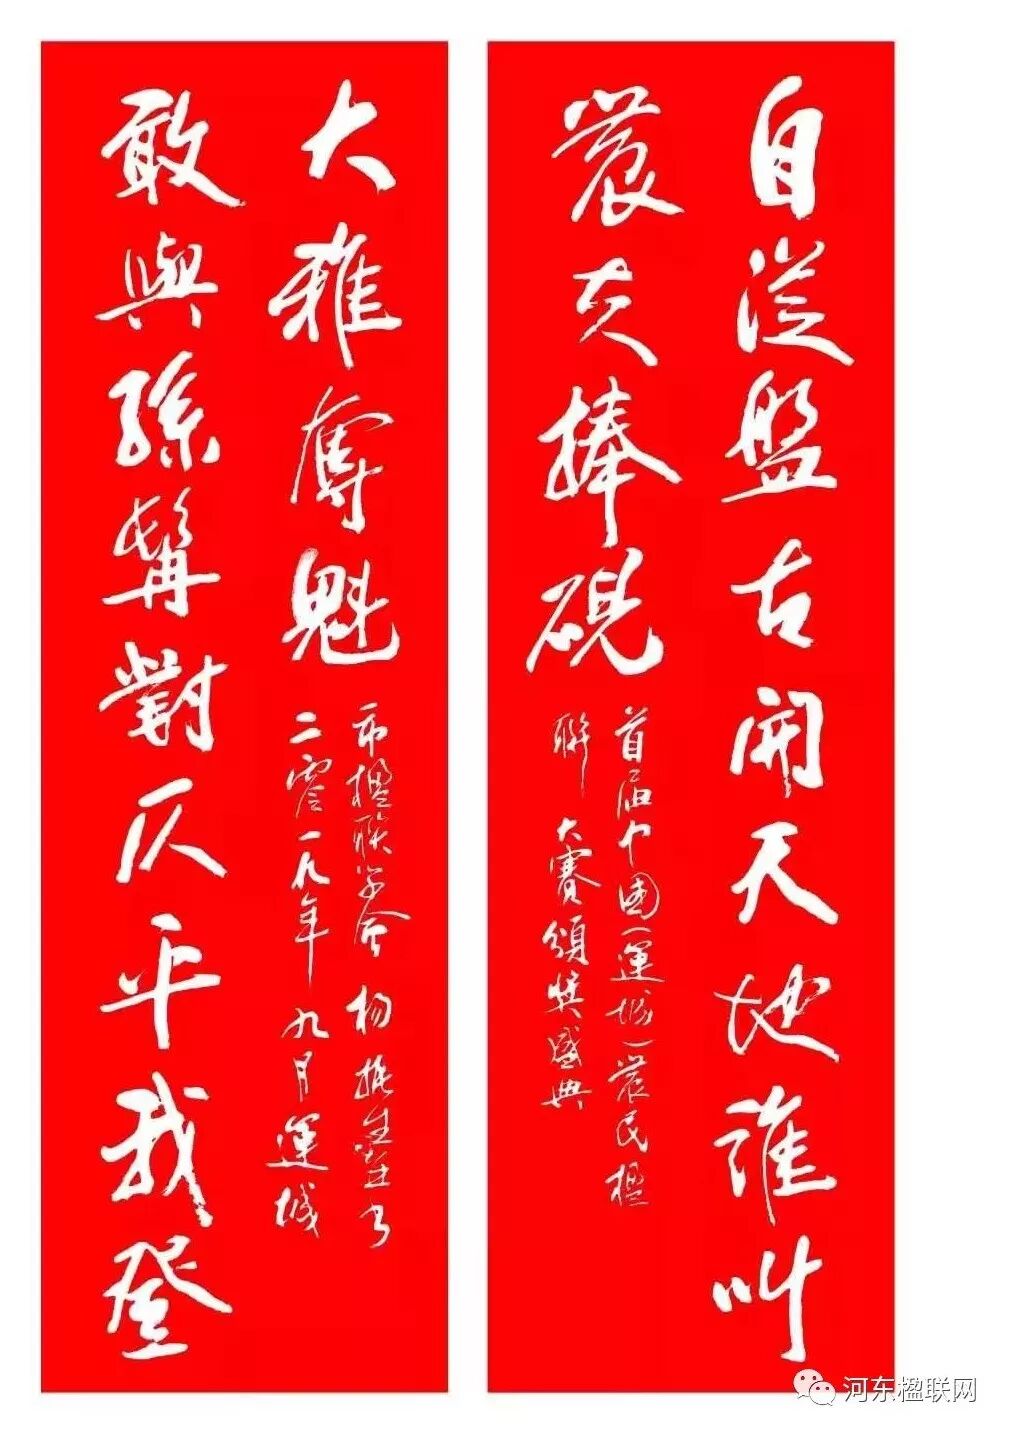 自從盤古開天地誰叫
農夫捧硯
首届中國（運城）農民楹
聯大賽頒獎盛典
敢與孫髯對仄平我登
大雅奪魁
市楹联学会 杨振生书
二零一九年九月運城
河东楹联网